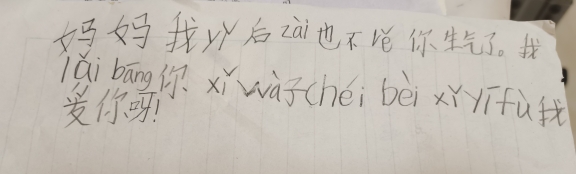 妈妈我yǐ后zài也不rě你生气了。我
lǎi bāng你 xǐ wà子chéi bèi xǐ yīfù我
爱你呀!